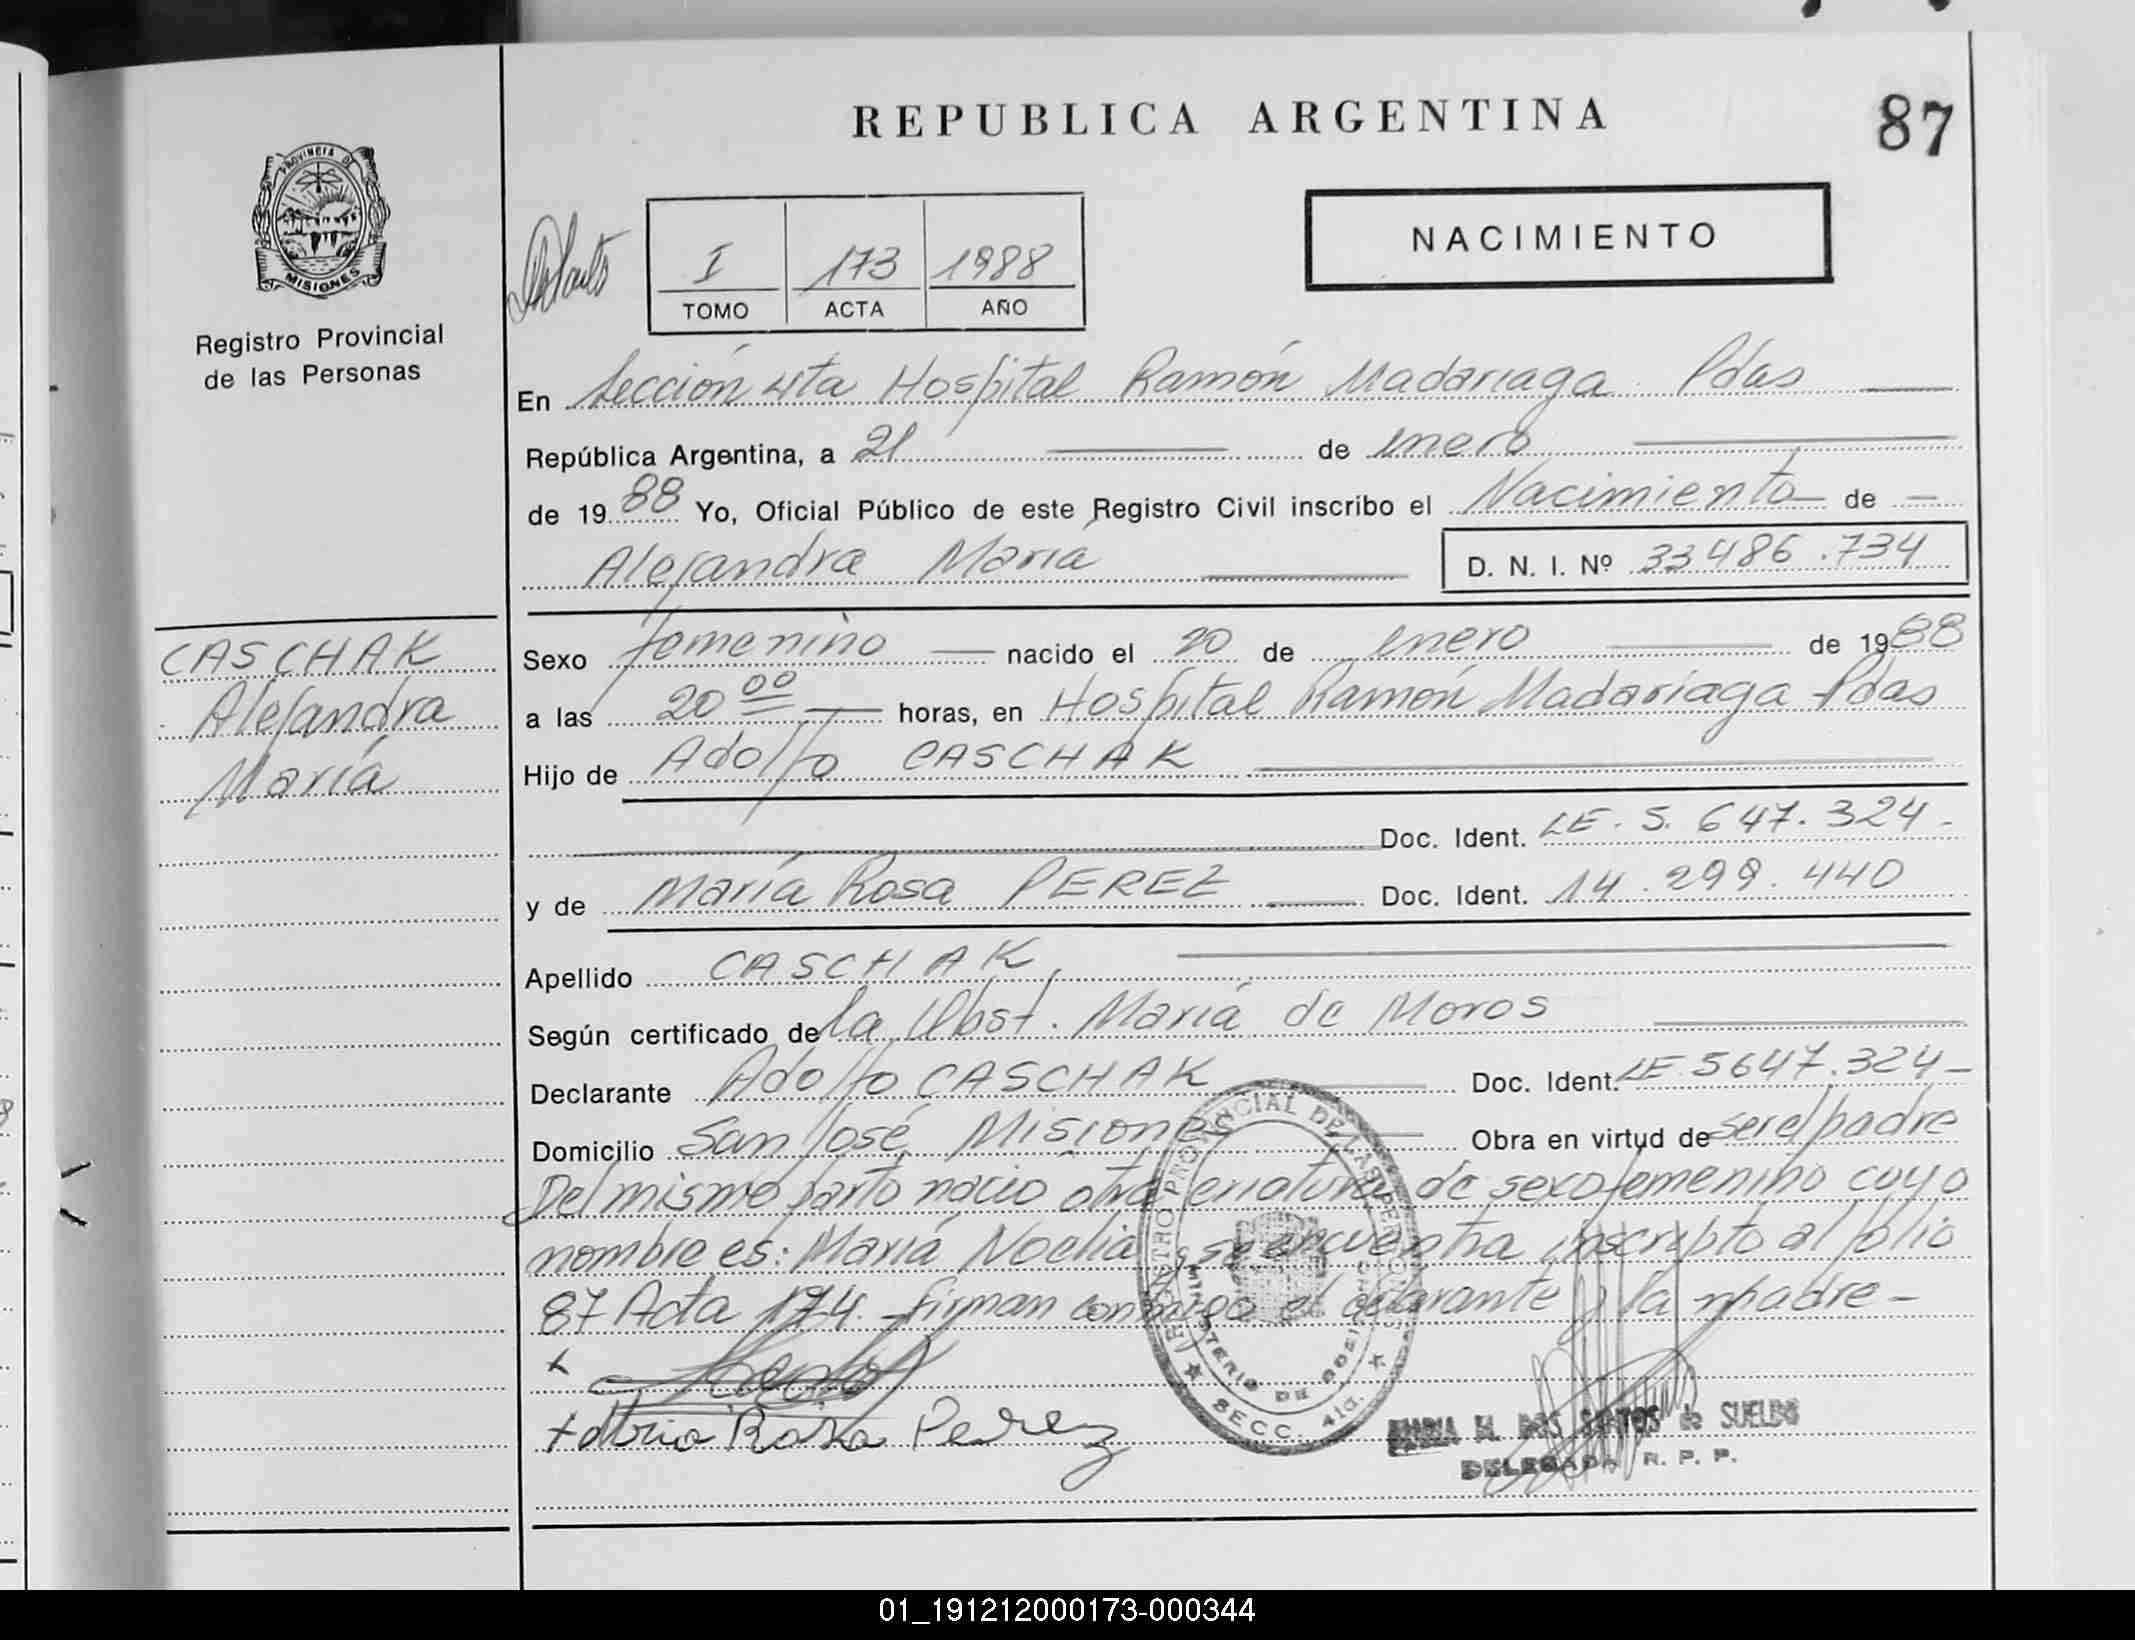 REPUBLICA ARGENTINA
87
PROVINCIA DE
MISIONES
Registro Provincial
de las Personas
NACIMIENTO
I 173 1988
TOMO ACTA AÑO
En Sección 4ta Hospital Ramón Madariaga Pdas
República Argentina, a 21 de enero
de 1988 Yo, Oficial Público de este Registro Civil inscribo el Nacimiento de
Alejandra María
D. N. I. Nº 33.486.734
CASCHAK
Alejandra
María
Sexo femenino nacido el 20 de enero de 1988
a las 20 00 horas, en Hospital Ramón Madariaga Pdas
Hijo de Adolfo CASCHAK
Doc. Ident. LE. 5.647.324-
y de María Rosa PEREZ Doc. Ident. 14.299.440
Apellido CASCHAK
Según certificado de la Obst. María de Moros
Declarante Adolfo CASCHAK Doc. Ident. LE 5647.324-
Domicilio San José, Misiones Obra en virtud de ser el padre
Del mismo parto nacio otra criatura de sexo femenino cuyo
nombre es: María Noelia, se encuentra inscripto al folio
87 Acta 174. - firman conmigo el declarante y la madre -
REGISTRO PROVINCIAL DE LAS PERSONAS
MINISTERIO DE GOBIERNO
SECC. 4ta.
x
+ Maria Rosa Perez
MARIA M. DOS SANTOS de SUELDO
DELEGADA R. P. P.
01_191212000173-000344